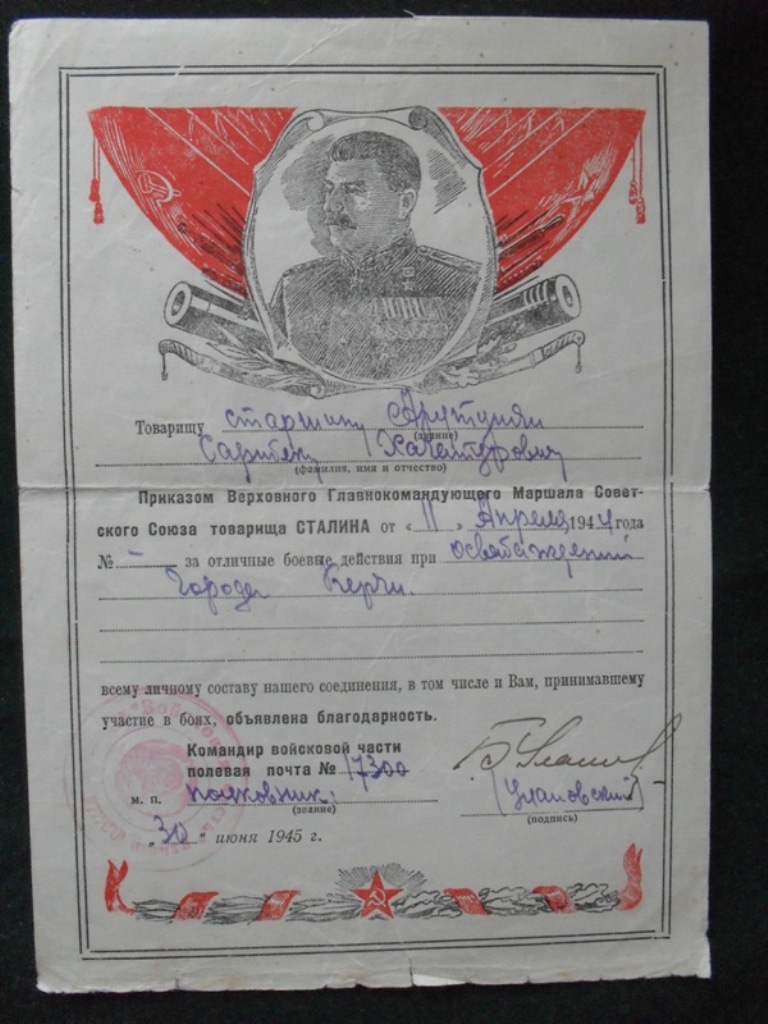 Товарищу старшину Арутунян
(звание)
Сарибек Хачатурович
(фамилия, имя и отчество)
Приказом Верховного Главнокомандующего Маршала Совет-
ского Союза товарища СТАЛИНА от «11» Апреля 1944 года
№ - за отличные боевые действия при освобождении
Города Керчи.
всему личному составу нашего соединения, в том числе и Вам, принимавшему
участие в боях, объявлена благодарность.
Командир войсковой части
полевая почта № 17300
м. п. полковник:
(звание)
(Улановский)
(подпись)
„30" июня 1945 г.